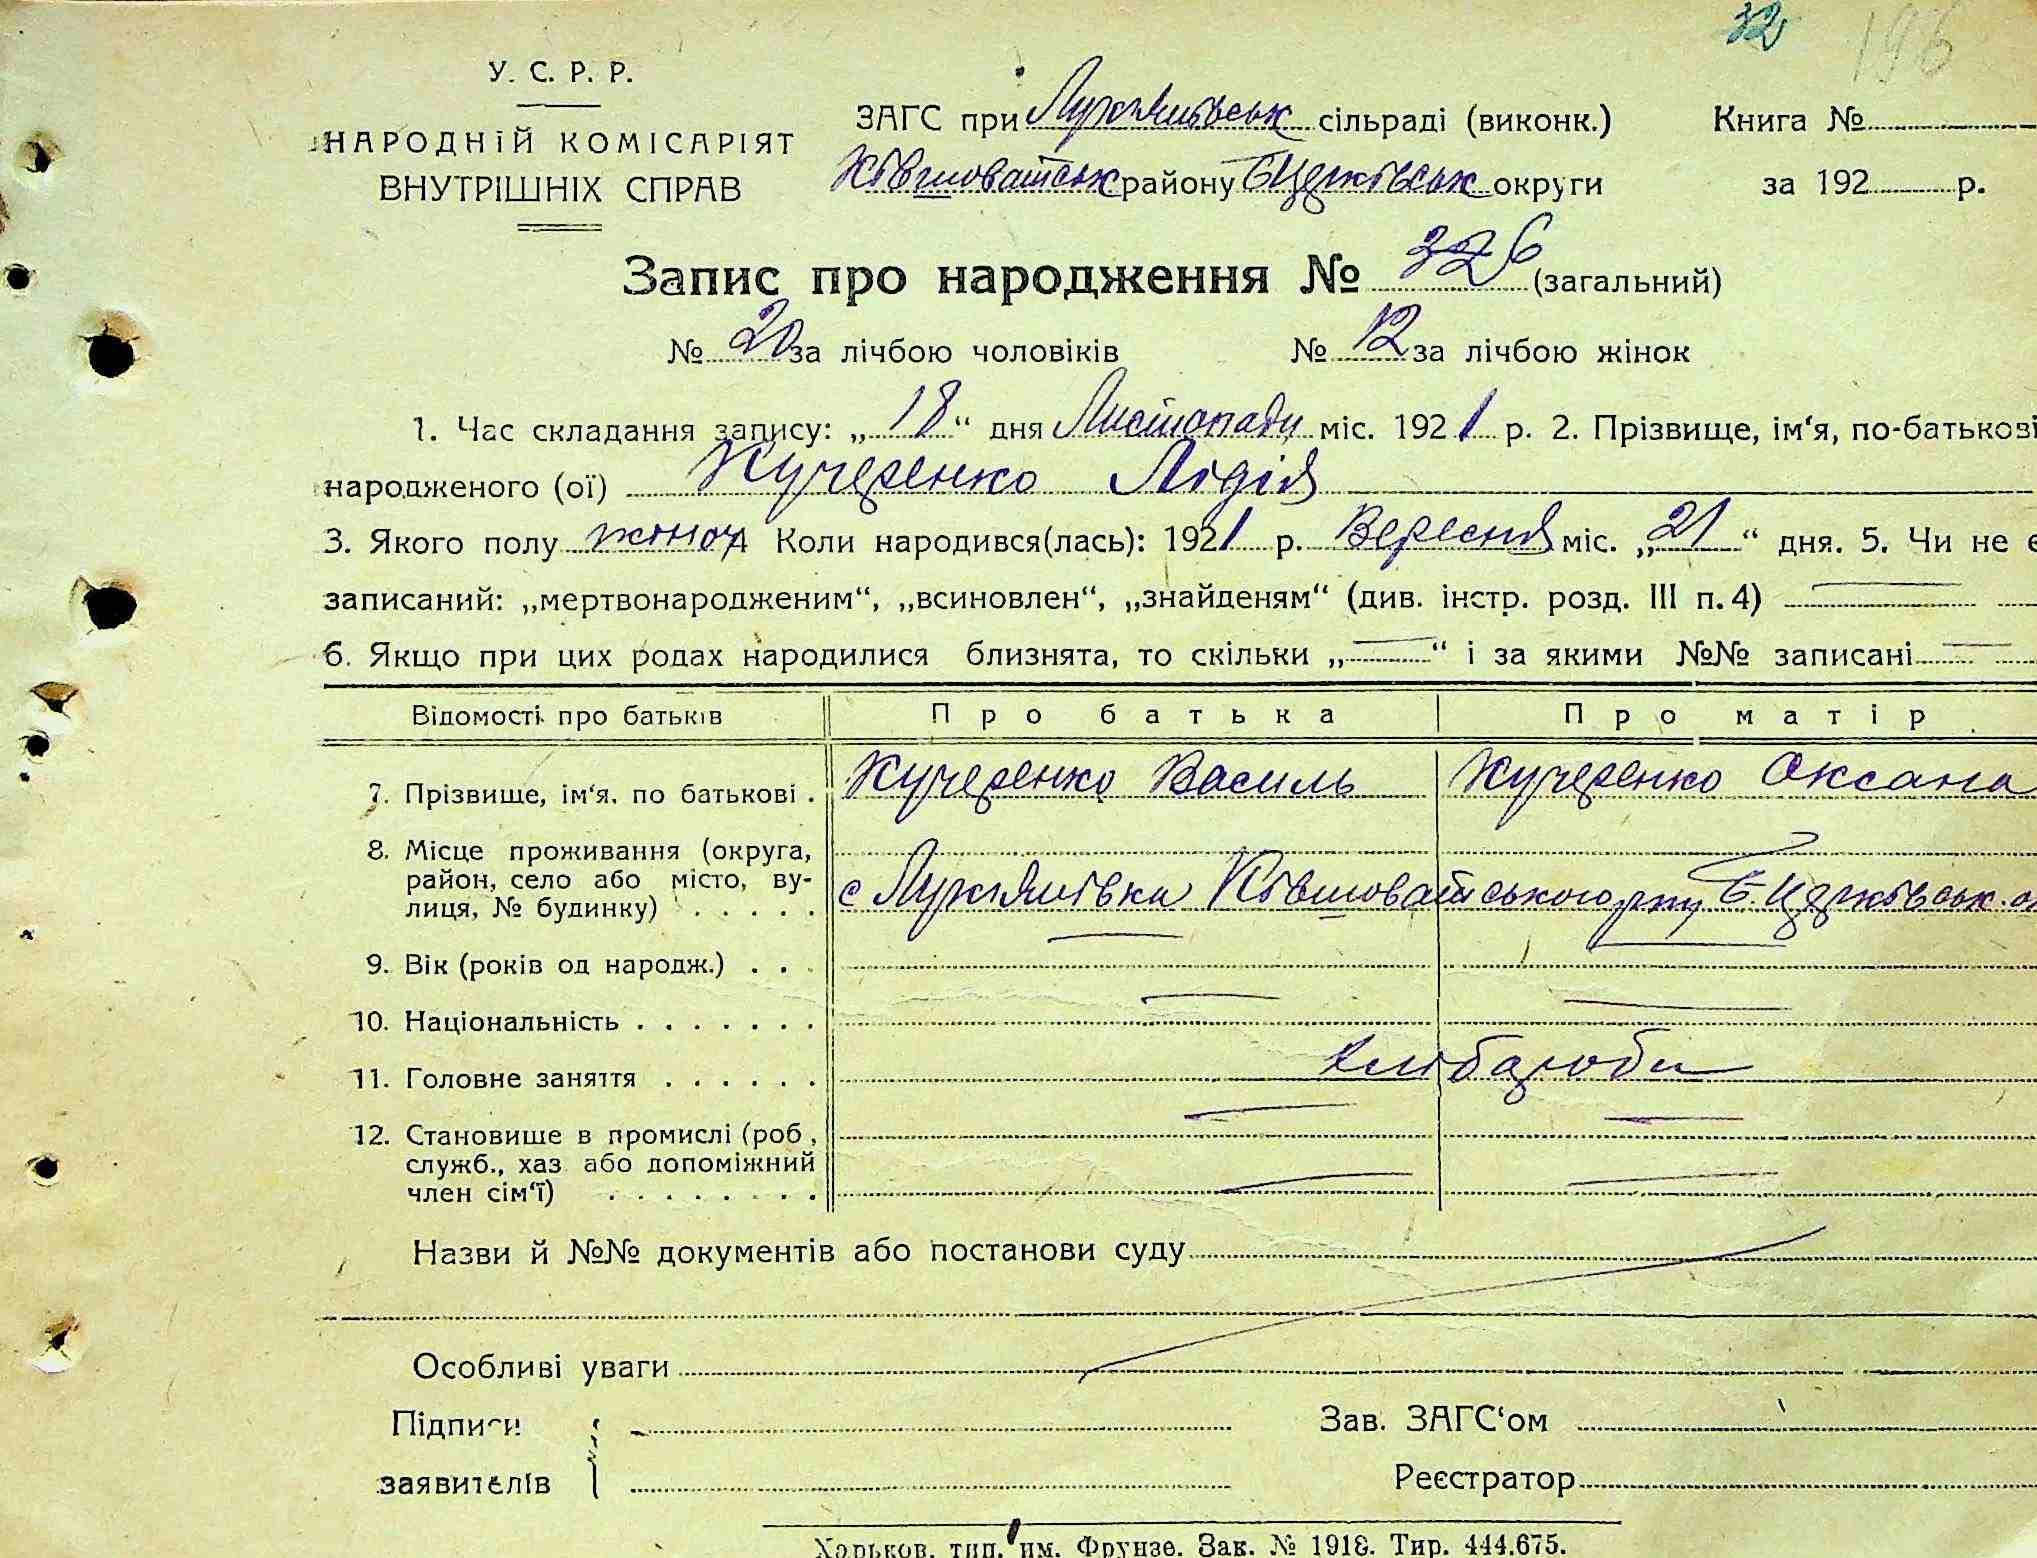 32 196
У. С. Р. Р.
НАРОДНІЙ КОМІСАРІЯТ
ВНУТРІШНІХ СПРАВ
ЗАГС при Лукянівськ сільраді (виконк.) Книга №
Ківшоватськ району БЦерківськ округи за 192 р.
Запис про народження № 326 (загальний)
№ 20 за лічбою чоловіків № 12 за лічбою жінок
1. Час складання запису: „18“ дня Листопаду міс. 1921 р. 2. Прізвище, ім‘я, по-батькові
народженого (ої) Кучеренко Лідія
3. Якого полу жіноч 4 Коли народився(лась): 1921 р. Вересня міс. „21“ дня. 5. Чи не є
записаний: „мертвонародженим“, „всиновлен“, „знайденям“ (див. інстр. розд. III п. 4)
6. Якщо при цих родах народилися близнята, то скільки „—“ і за якими №№ записані
Відомості про батьків Про батька Про матір
7. Прізвище, ім‘я, по батькові . Кучеренко Василь Кучеренко Оксана
8. Місце проживання (округа,
район, село або місто, ву-
лиця, № будинку) . . . . . с Лукянівка Ківшоватського рну Б. Церківськ. о
9. Вік (років од народж.) . . .
10. Національність . . . . . . .
11. Головне заняття . . . . . . хлібароби
12. Становище в промислі (роб.,
служб., хаз або допоміжний
член сім‘ї) . . . . . . . .
Назви й №№ документів або постанови суду
Особливі уваги
Підписи Зав. ЗАГС‘ом
заявителів Реєстратор
Харьков, тип. им. Фрунзе. Зак. № 1918. Тир. 444.675.